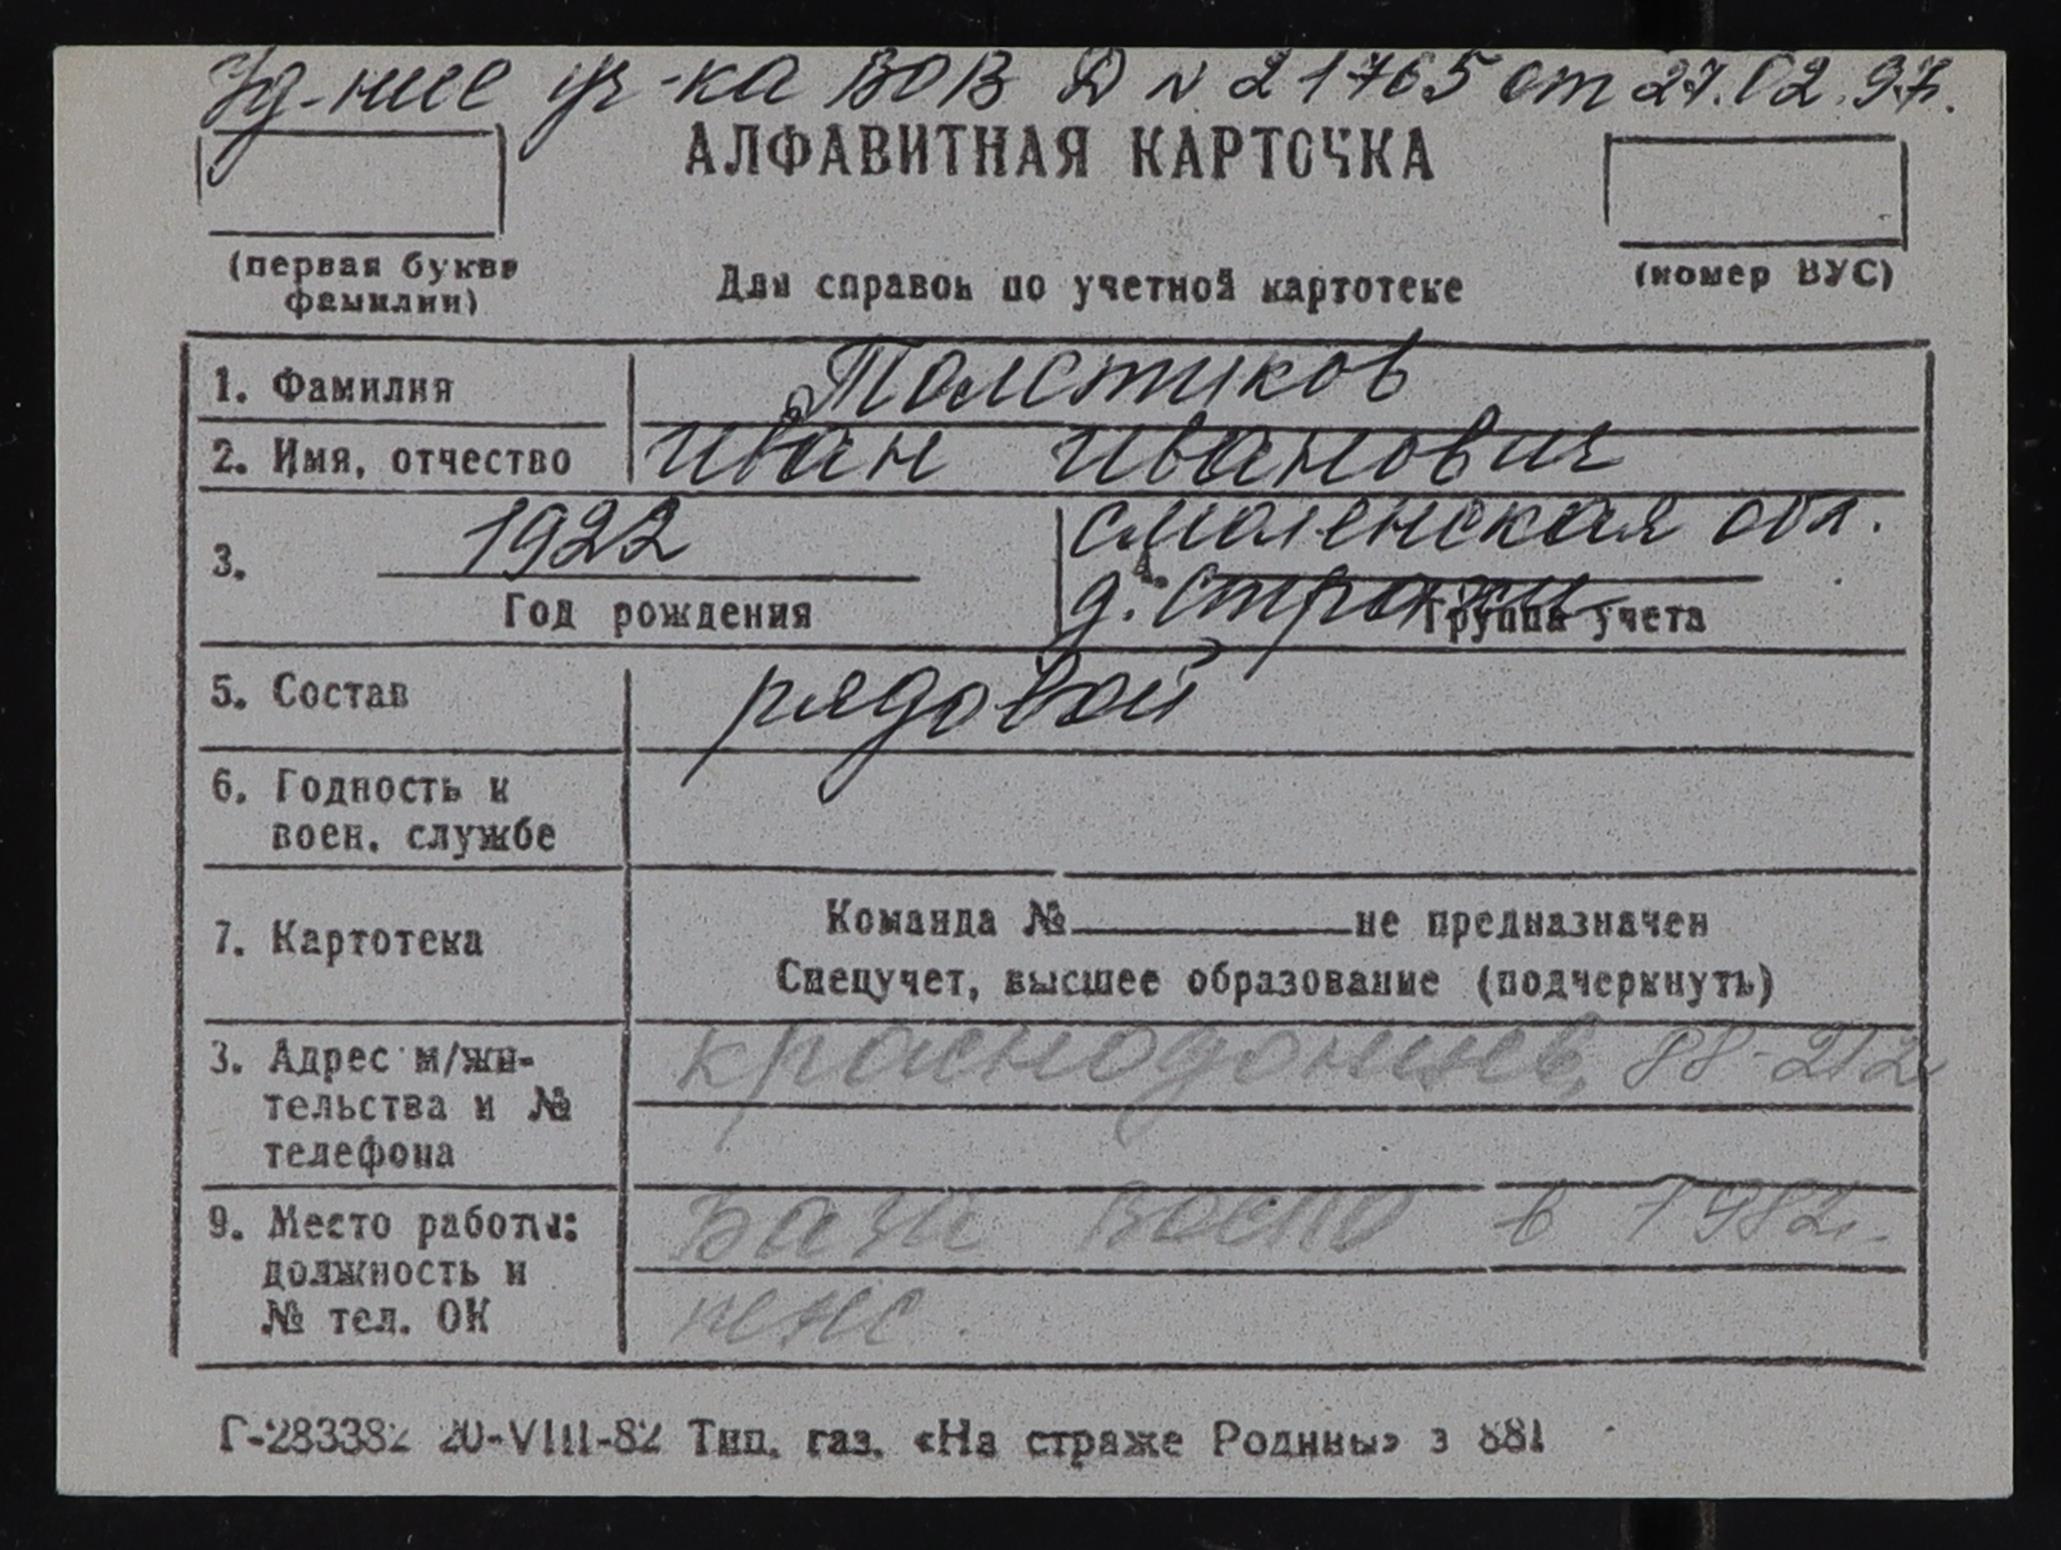 Уд-ние уч-ка ВОВ Д № 21765 от 27.02.97.
АЛФАВИТНАЯ КАРТОЧКА
(первая буква
фамилии)
Для справок по учетной картотеке
(номер ВУС)
1. Фамилия Толстиков
2. Имя, отчество Иван Иванович
3. 1922 Смоленская обл.
д.
Год рождения Группа учета
5. Состав рядовой
6. Годность к
воен. службе
7. Картотека
Команда № не предназначен
Спецучет, высшее образование (подчеркнуть)
3. Адрес м/жи-
тельства и №
телефона
Краснодонцев, 88-212
9. Место работы:
должность и
№ тел. ОК
База в 1982г.
Г-283382 20-VIII-82 Тип. газ. «На страже Родины» з 881